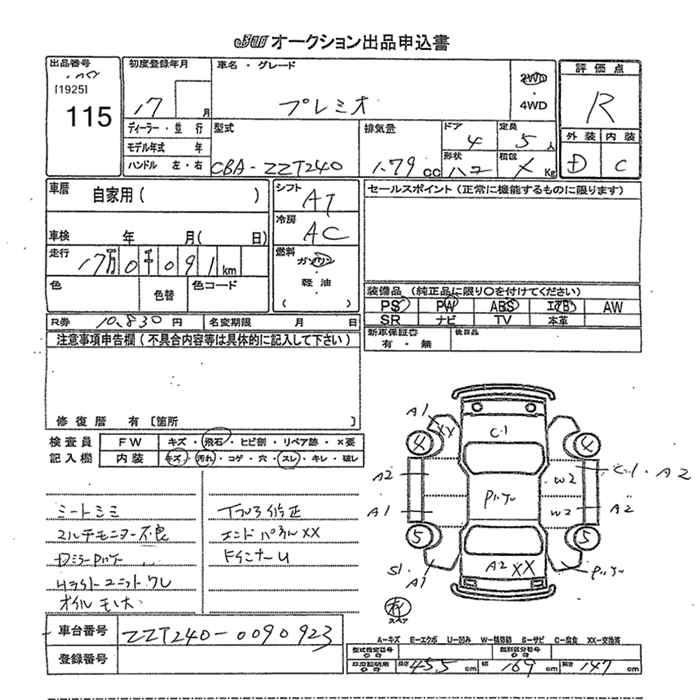 JU オークション出品申込書
出品番号
[1925]
115
初度登録年月
17 月
車名・グレード
プレミオ
2WD
・
4WD
評価点
R
外装 内装
D C
ディーラー・並行
モデル年式 年
ハンドル 左・右
型式
CBA-ZZT240
排気量
1.79 cc
ドア
4
定員
5 人
形状
ハコ
積載
X Kg
車暦
自家用( )
車検 年 月( 日)
走行
17万0千091km
色
色替
色コード
シフト
AT
冷房
AC
燃料
ガソリン
・
軽油
( )
セールスポイント(正常に機能するものに限ります)
装備品(純正品に限り○を付けてください)
PS PW ABS エアB AW
SR ナビ TV 本革
新車保証書
有・無
後日品
R券 10,830 円
名変期限 月 日
注意事項申告欄(不具合内容等は具体的に記入して下さい)
修復暦 有[箇所 ]
検査員
記入欄
FW キズ・飛石・ヒビ割・リペア跡・X要
内装 キズ・汚れ・コゲ・穴・スレ・キレ・破レ
シートシミ
マルチモニター不良
オイルモレ大
下フロ修正
エンドパネルXX
車台番号 ZZT240-0090923
登録番号
A1
C1
4
4
A2
W2
C1・A2
A1
W2
A2
5
5
S1
A1
A2 XX
スペア
A-キズ E-エクボ U-凹み W-補修跡 S-サビ C-腐食 XX-交換済
型式指定番号
類別区分番号
長さ 455 cm 幅 169 cm 高さ 147 cm